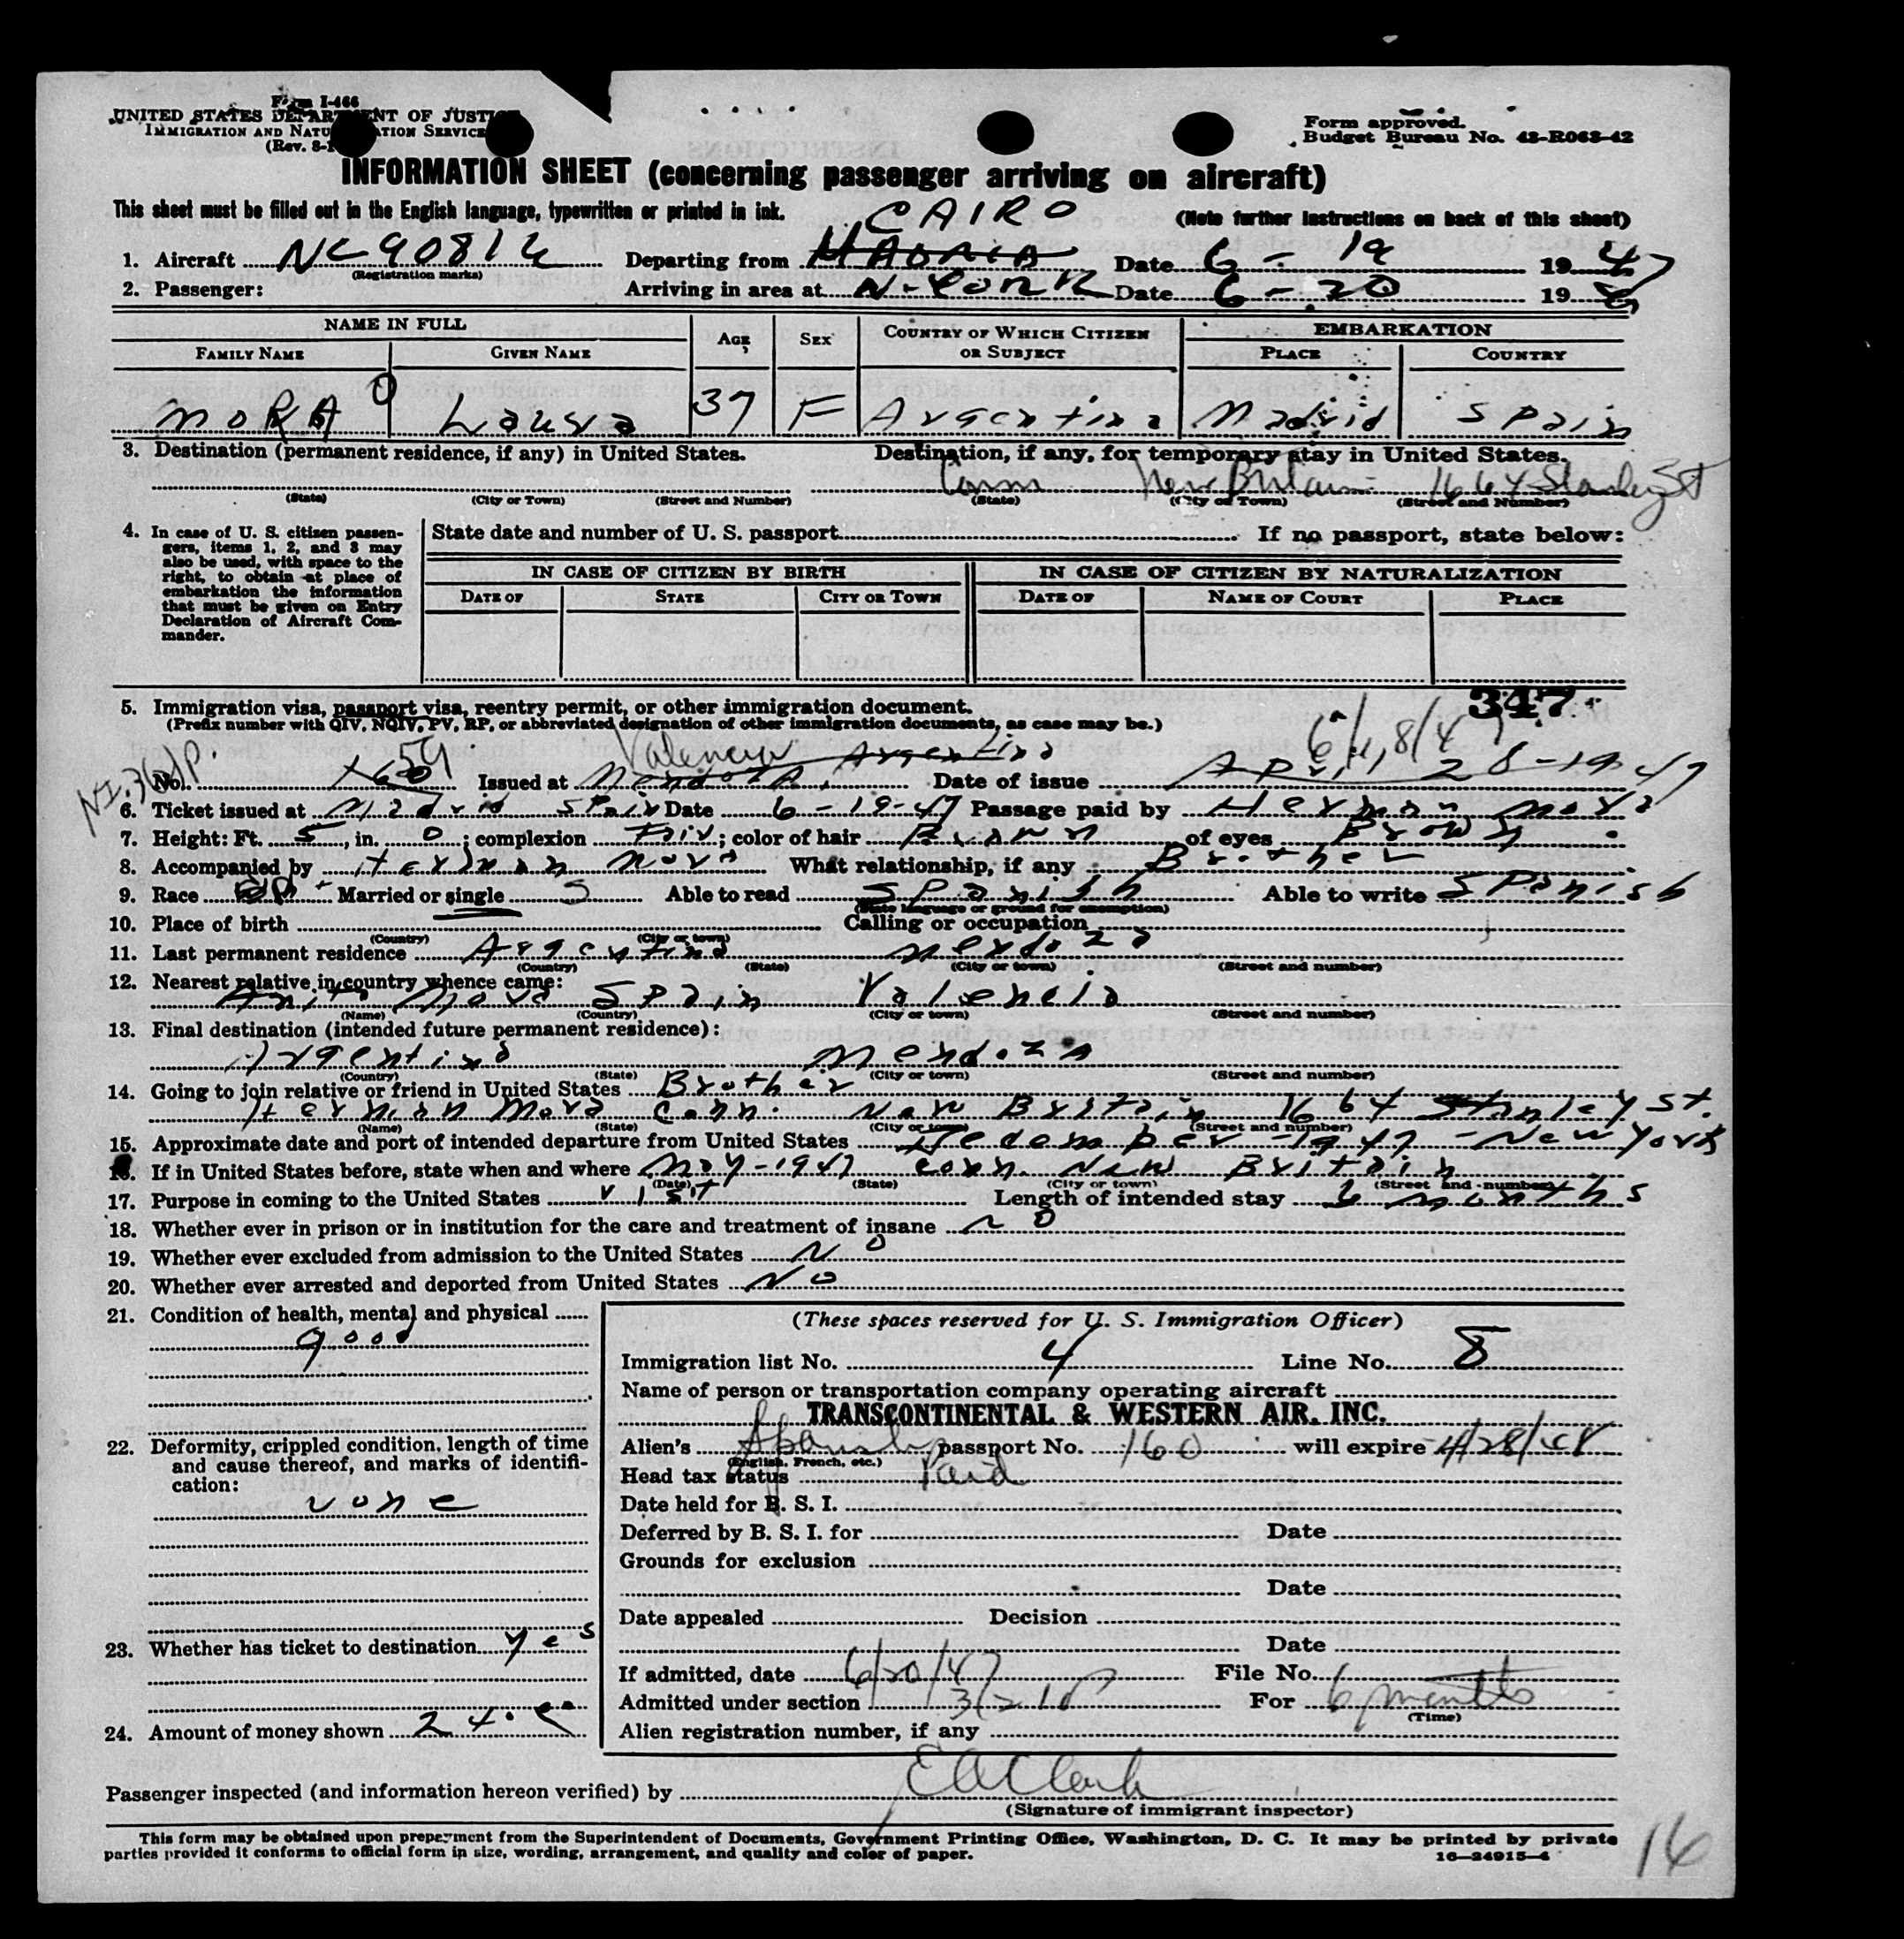 Form I-466
UNITED STATES DEPARTMENT OF JUSTICE
IMMIGRATION AND NATURALIZATION SERVICE
(Rev. 8-1
Form approved.
Budget Bureau No. 43-R063-42
INFORMATION SHEET (concerning passenger arriving on aircraft)
This sheet must be filled out in the English language, typewritten or printed in ink.
CAIRO
(Note further instructions on back of this sheet)
1. Aircraft NC 90814 Departing from MADRID Date 6 - 19 1947
(Registration marks)
2. Passenger: Arriving in area at N-YORK Date 6 - 20 19
NAME IN FULL AGE SEX COUNTRY OF WHICH CITIZEN OR SUBJECT EMBARKATION
FAMILY NAME GIVEN NAME PLACE COUNTRY
MORA Laura 37 F Argentina Madrid Spain
3. Destination (permanent residence, if any) in United States. Destination, if any, for temporary stay in United States.
Conn New Britain 1664 Stanley St
(State) (City or Town) (Street and Number) (State) (City or Town) (Street and Number)
4. In case of U. S. citizen passengers, items 1, 2, and 3 may also be used, with space to the right, to obtain at place of embarkation the information that must be given on Entry Declaration of Aircraft Commander.
State date and number of U. S. passport If no passport, state below:
IN CASE OF CITIZEN BY BIRTH IN CASE OF CITIZEN BY NATURALIZATION
DATE OF STATE CITY OR TOWN DATE OF NAME OF COURT PLACE
347
5. Immigration visa, passport visa, reentry permit, or other immigration document.
(Prefix number with QIV, NQIV, PV, RP, or abbreviated designation of other immigration documents, as case may be.)
59 Valencia Argentina
No. Issued at Mendoza, Date of issue April 28-1947
6. Ticket issued at Madrid Spain Date 6-19-47 Passage paid by Herman Mora
7. Height: Ft. 5, in. 0; complexion Fair; color of hair Brown of eyes Brown
8. Accompanied by Herman Mora What relationship, if any Brother
9. Race Married or single S Able to read Spanish Able to write Spanish
(State language or ground for exemption)
10. Place of birth Calling or occupation
(Country) (City or town)
11. Last permanent residence Argentina Mendoza
(Country) (State) (City or town) (Street and number)
12. Nearest relative in country whence came:
Anita Mora Spain Valencia
(Name) (Country) (City or town) (Street and number)
13. Final destination (intended future permanent residence):
Argentina Mendoza
(Country) (State) (City or town) (Street and number)
14. Going to join relative or friend in United States Brother
Herman Mora Conn. New Britain 1664 Stanley St.
(Name) (State) (City or town) (Street and number)
15. Approximate date and port of intended departure from United States Dedember -1947 - New York
16. If in United States before, state when and where May-1947 conn. New Britain
(Date) (State) (City or town) (Street and number)
17. Purpose in coming to the United States visit Length of intended stay 6 months
18. Whether ever in prison or in institution for the care and treatment of insane no
19. Whether ever excluded from admission to the United States No
20. Whether ever arrested and deported from United States No
21. Condition of health, mental and physical
good
22. Deformity, crippled condition, length of time and cause thereof, and marks of identification:
none
23. Whether has ticket to destination yes
24. Amount of money shown 24.
(These spaces reserved for U. S. Immigration Officer)
Immigration list No. 4 Line No. 8
Name of person or transportation company operating aircraft
TRANSCONTINENTAL & WESTERN AIR, INC.
Alien's Spanish passport No. 160 will expire 4/28/48
(English, French, etc.)
Head tax status Paid
Date held for B. S. I.
Deferred by B. S. I. for Date
Grounds for exclusion
Date
Date appealed Decision
Date
If admitted, date 6/20/47 File No.
Admitted under section 3(2) For 6 months
(Time)
Alien registration number, if any
Passenger inspected (and information hereon verified) by E A Clark
(Signature of immigrant inspector)
This form may be obtained upon prepayment from the Superintendent of Documents, Government Printing Office, Washington, D. C. It may be printed by private
parties provided it conforms to official form in size, wording, arrangement, and quality and color of paper.
16-24915-4
16